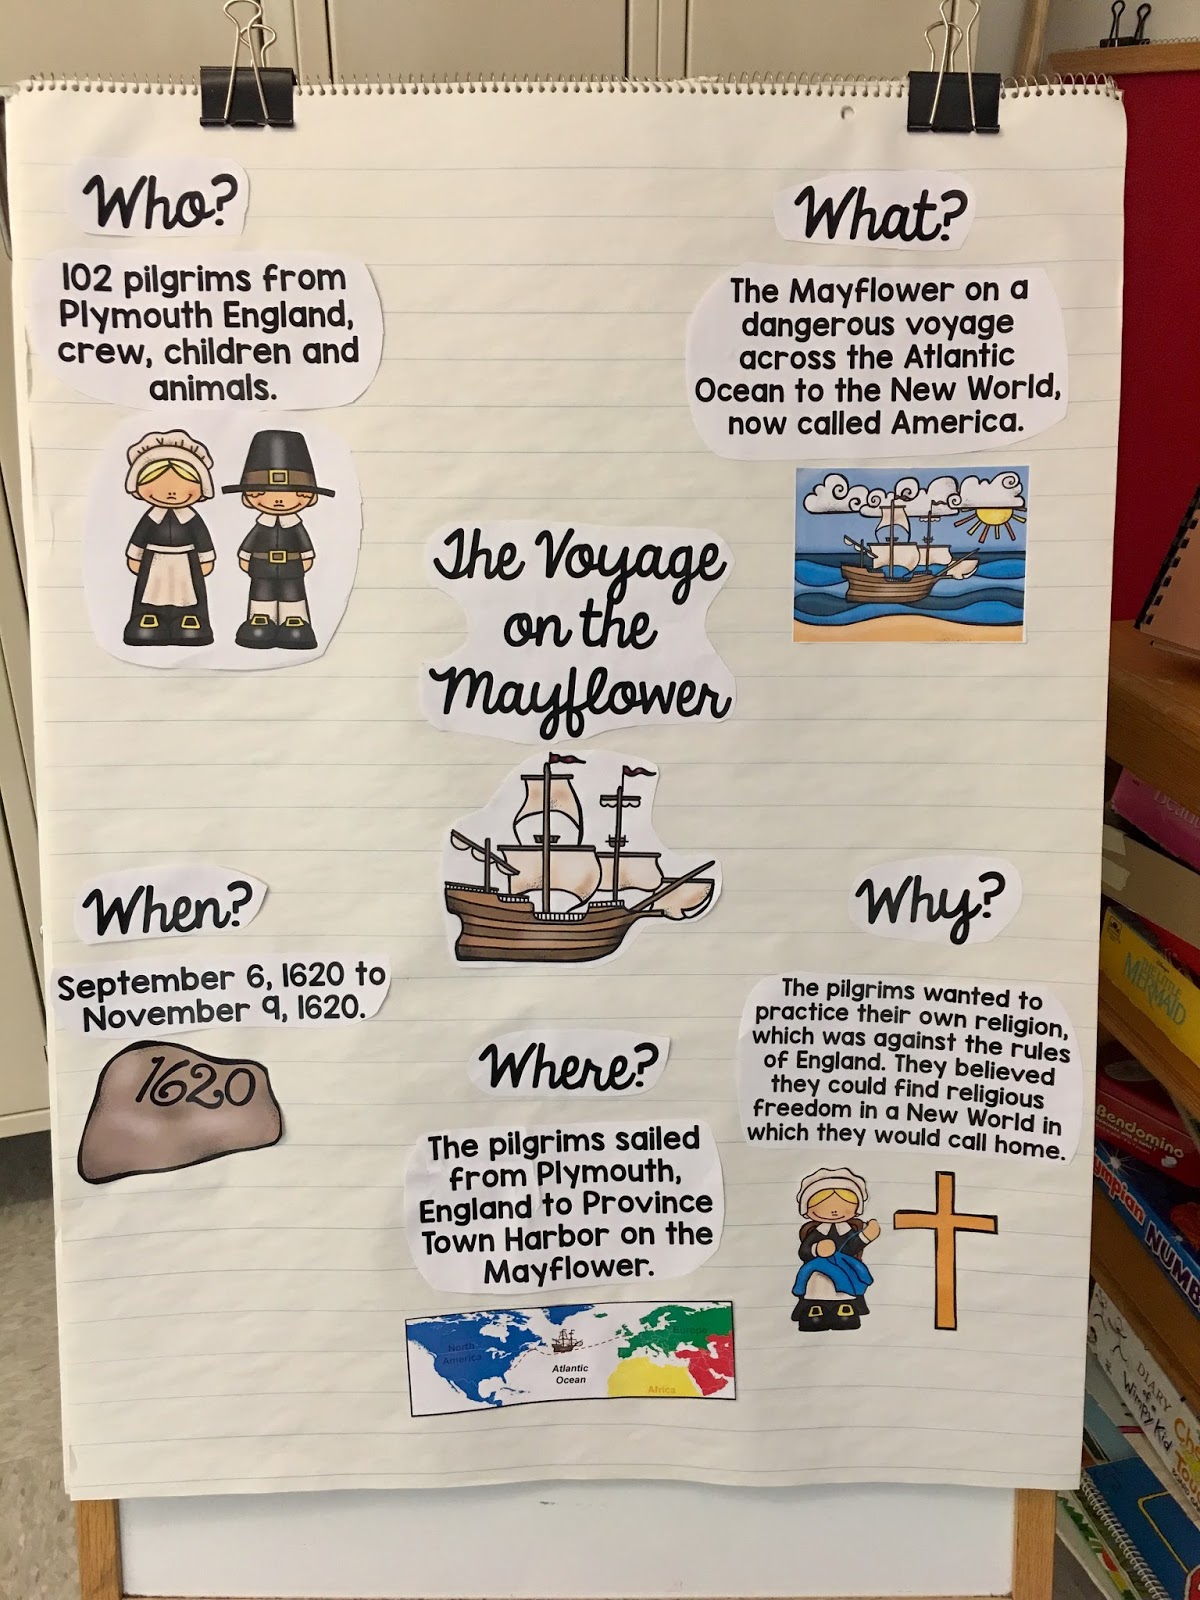 Who?
102 pilgrims from
Plymouth England,
crew, children and
animals.
What?
The Mayflower on a
dangerous voyage
across the Atlantic
Ocean to the New World,
now called America.
The Voyage
on the
Mayflower
When?
September 6, 1620 to
November 9, 1620.
1620
Where?
The pilgrims sailed
from Plymouth,
England to Province
Town Harbor on the
Mayflower.
North
America
Europe
Atlantic
Ocean
Africa
Why?
The pilgrims wanted to
practice their own religion,
which was against the rules
of England. They believed
they could find religious
freedom in a New World in
which they would call home.
THE LITTLE
MERMAID
Bendomino
DIARY
of a
Wimpy Kid